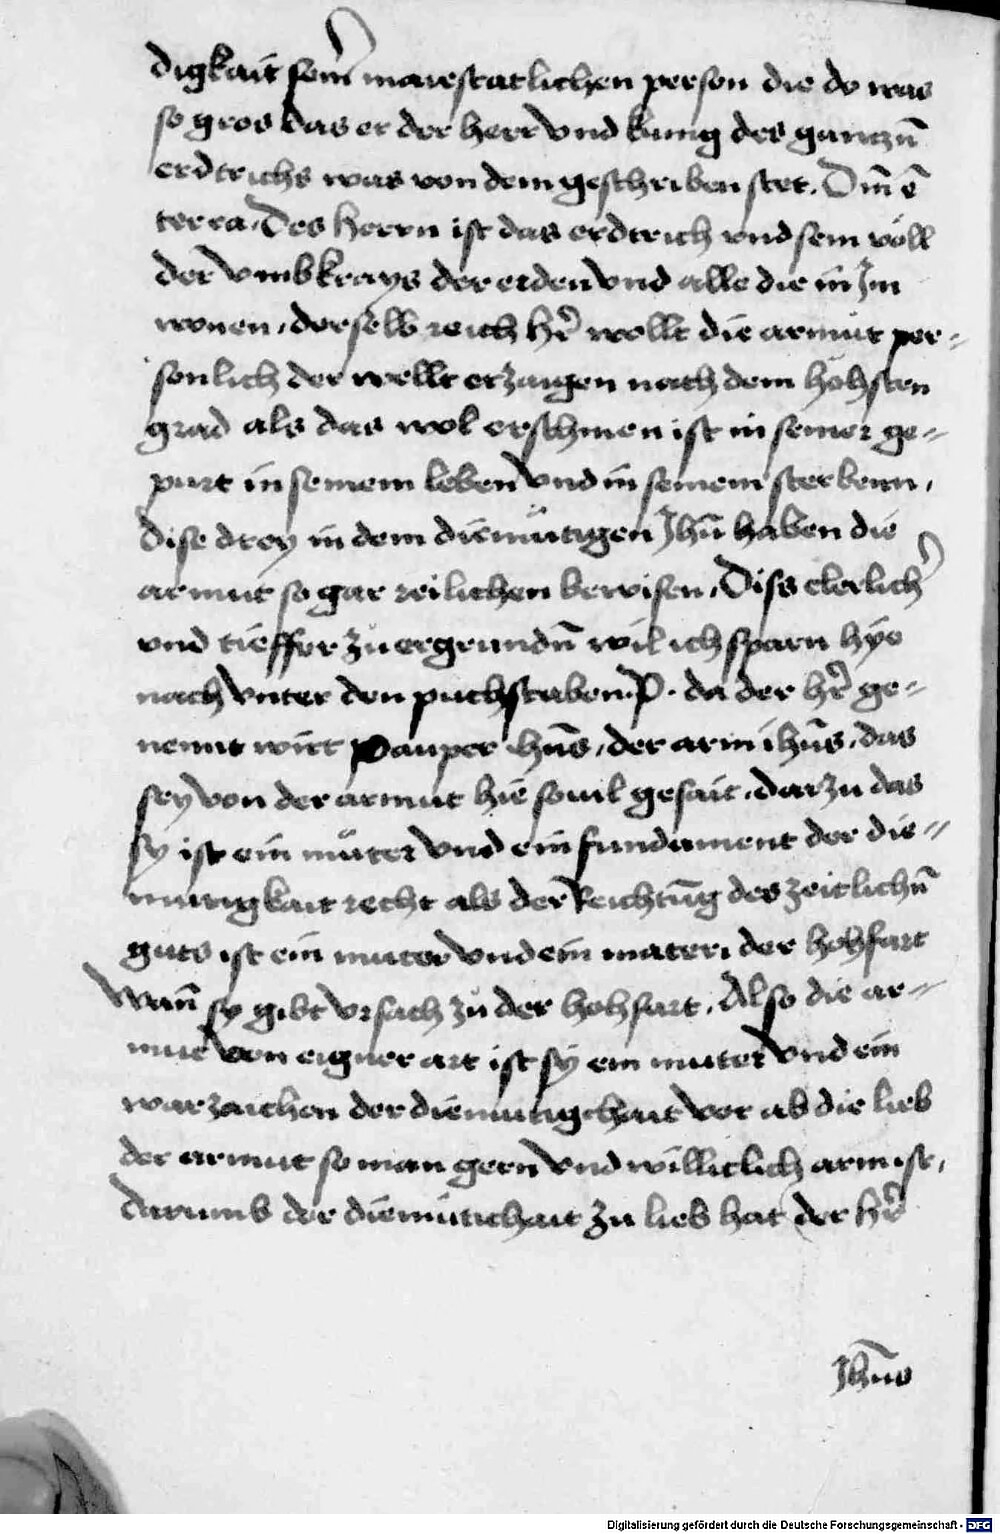 digkait seinr̄ maiestatlichen person die do was
so gros das er der herr vnd kunig des gantzn̄
erdtrichs was von dem geschriben stet. Dn̄i ē
terra. Des herrn ist das erdtrich vnd sein völl
der vmbkrays der erden vnd alle die in Im
wonen, derselb reich hr̄ wollt die armůt per=
sonlich der wellt erzaigen nach dem höhsten
grad als das wol erschinen ist in seiner ge=
purt in seinem leben vnd in seinem sterbenn,
dise drey in dem diemütigen Jhū haben die
armut so gar reilichen bewisen, Diss clerlichr̄
vnd tieffer zů ergrundn̄ wil ich sparn hye
nach vnter den puchstaben .P. da der hr̄ ge=
nennt wirt pauper ihūs, der arm ihūs, das
sey von der armut hie souil gesait, darzu das
sy ist ein můter vnd ein fundament der die=
mutigkait recht als der Reichtūg des zeitlichn̄
guts ist ein muter vnd ein materi der hohfart
Wann̄ sy gibt vrsach zů der hohfart, Also die ar=
mut von eigner art ist sy ein muter vnd ein
warzaichen der diemutigchait vor ab die lieb
der armut so man gern vnd williclich arm ist,
darumb der diemütichait zu lieb hat der hr̄
Jhūs
Digitalisierung gefördert durch die Deutsche Forschungsgemeinschaft - DFG